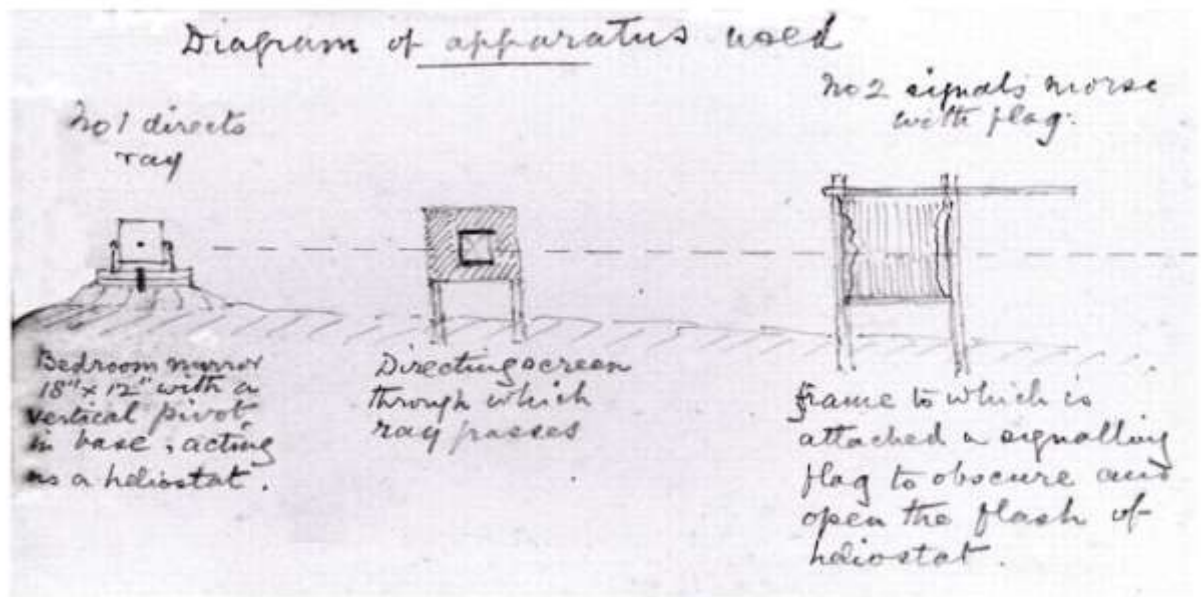 Diagram of apparatus used
No 1 directs
ray
No 2 signals morse
with flag.
Bedroom mirror
18" x 12" with a
vertical pivot
in base, acting
as a heliostat.
Directing screen
through which
ray passes
Frame to which is
attached a signalling
flag to obscure and
open the flash of
heliostat.